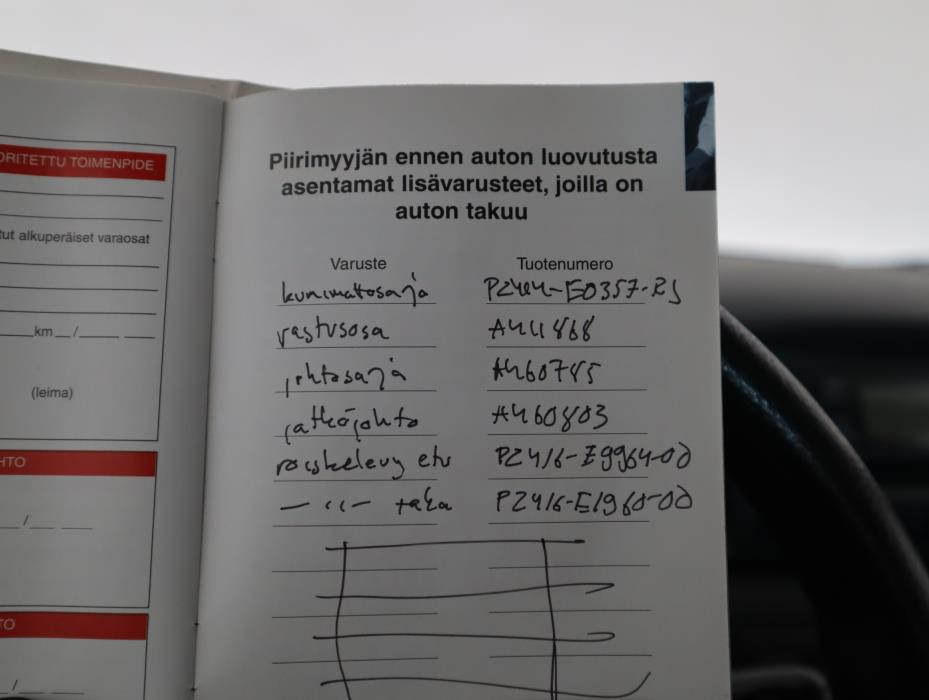 ORITETTU TOIMENPIDE
tut alkuperäiset varaosat
km __/____ ____
(leima)
HTO
/
TO
/
Piirimyyjän ennen auton luovutusta
asentamat lisävarusteet, joilla on
auton takuu
Varuste Tuotenumero
kumimatosarja
vastusosa A441868
johtosarja A460785
jatkojohto A460803
roiskelevy etu PZ416-E9964-00
— ‘‘ — taka PZ416-E1960-00